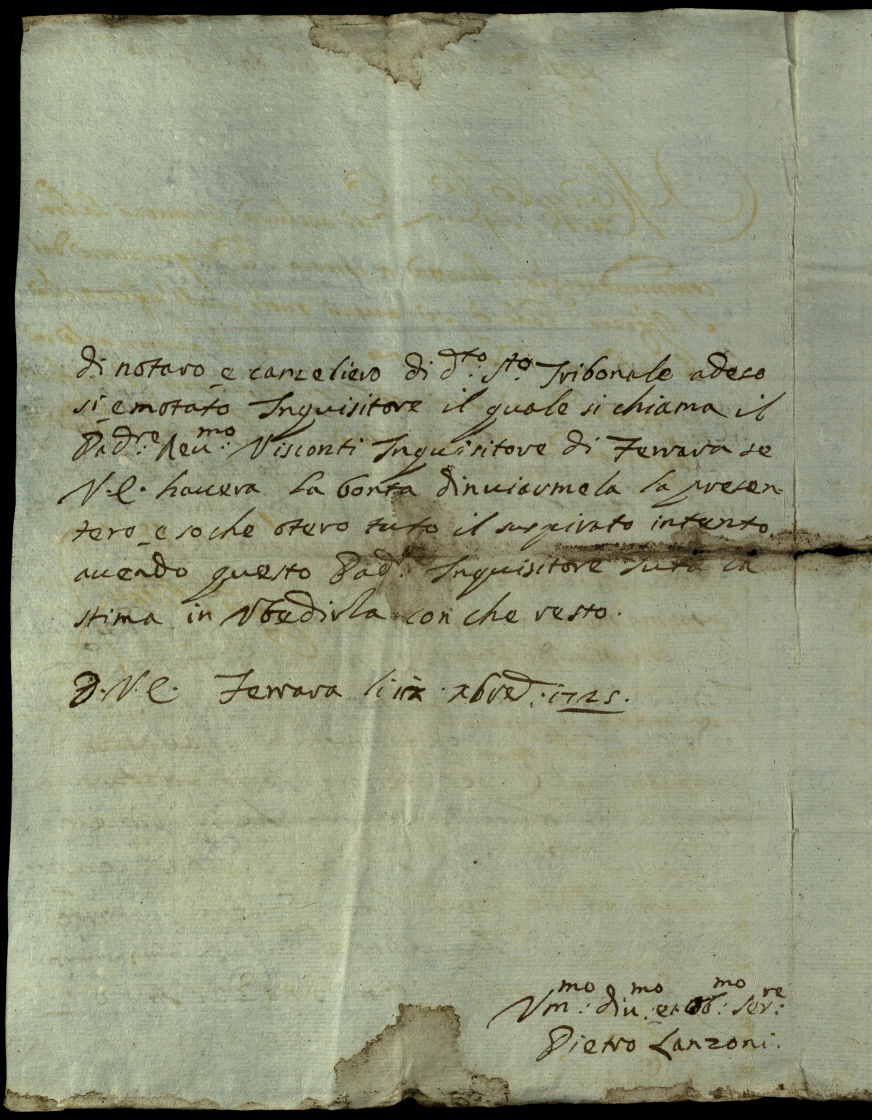 di notaro e canzeliero di d.to S.to Tribonale adeso
si e motato Inquisitore il quale si chiama il
Padre Reu.mo Visconti Inquisitore di Ferrara se
V.S. hauera la bonta dinuiarmela la presen
tero e so che otero tuto il suspirato intanto
auendo questo Pad.e Inquisitore tuta la
stima in Vbedirla con che resto.
D.V.S. Ferrara li Xbre 1725.
Vm.mo diu.mo et ob.mo Ser.re
Pietro Lanzoni.